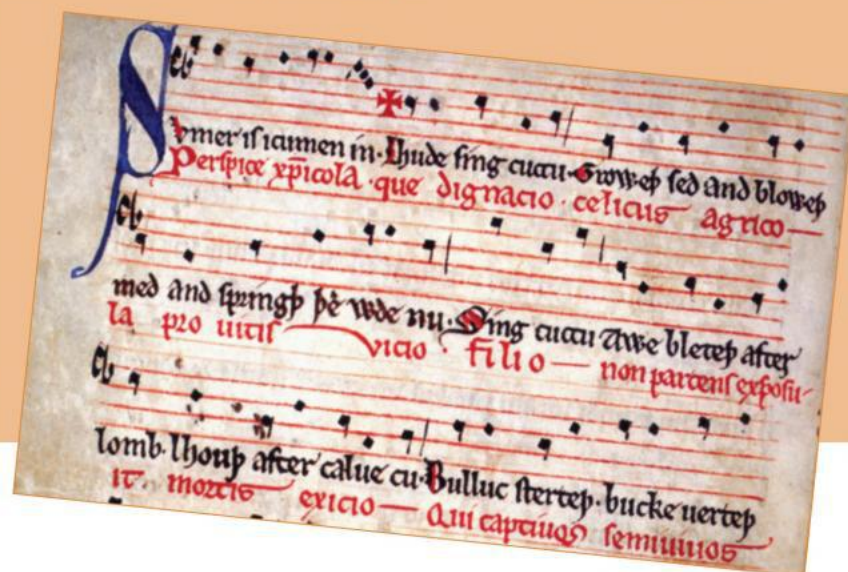 Sumer is icumen in· Lhude sing cuccu· Groweþ sed and bloweþ
Perspice xp̄icola· que dignacio· celicus agrico—
med and springþ þe wde nu· Sing cuccu Awe bleteþ after
la pro uitis vicio· filio— non parcens exposu-
lomb· lhouþ after calue cu· Bulluc sterteþ· bucke uerteþ
it mortis exicio— Qui captiuos semiuiuos